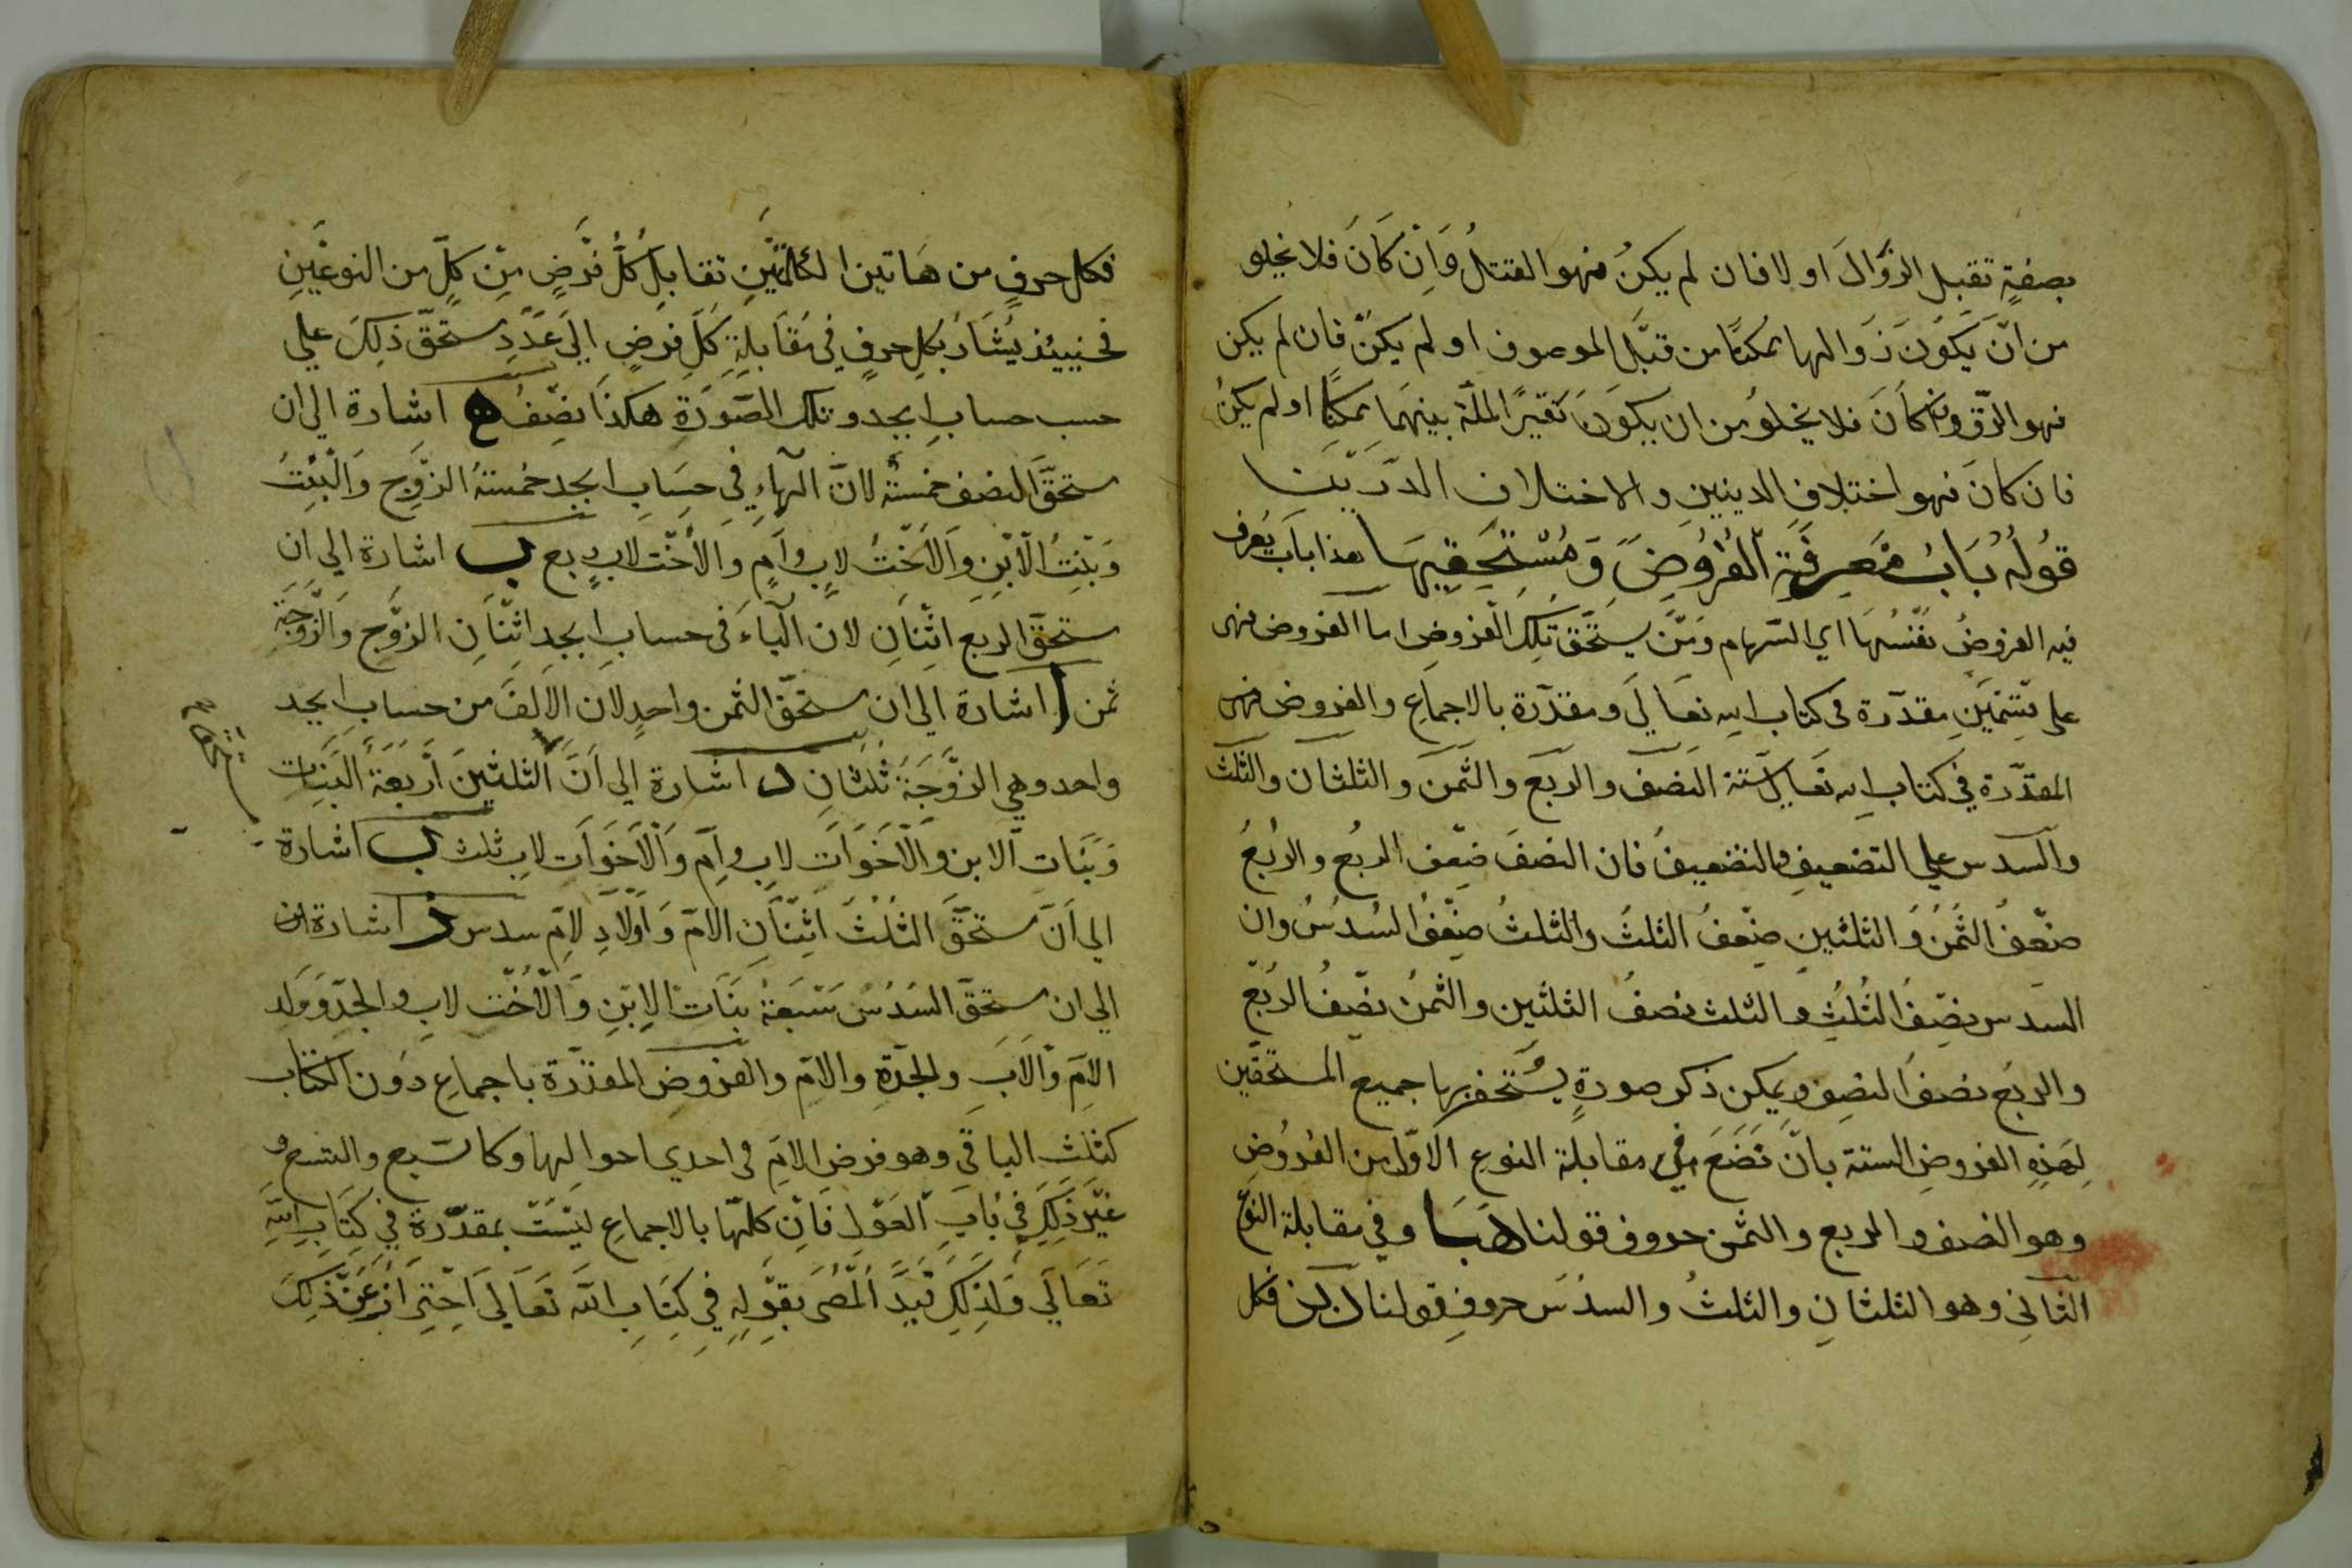 بصفةٍ تقبل الزّوالَ او لا فان لم يكنُ فهو القتلُ وَاِنْ كَانَ فلا يخلو
من انّ يكَونَ زَوالها ممكنًا من قبَل الموصوف او لم يكنْ فان لم يكن
فهو الرّق وان كاَنَ فلا يخلوُ من ان يكوَنَ تغيرًا الملّة بينهمَا ممكنًا او لم يكنْ
فان كانَ فهو اختلاف الدينين والاختلاف الدّريّت
قوُلُه بَابُ مَعرِفَة الفُرُوُضَ وَ مُسْتِحَقِيهَا هذا باَب يُعرف
فيه الفروضُ نفْسُهَا اي السّهام ومَنَّ يستَحَقّ تلِكَ الفروضِ اما الفروض فهى
على قسْمَينِ مقدّرة فى كتاب الله تعَالَي ومقدّرة بالاجماَعِ والفروض فهى
المقدّرة في كتاب الله تعَالي ستة النصَف والربَع والثّمَن والثلثان والثّلث
والسدس علي التضعيفِ والتنصيف فان النصفَ ضِعف الربع والربُعُ
ضعّفُ الثُمُنُ وَ الثلثينِ ضِعفُ الثلثُ والثلثُ ضِعّفُ السُدسُ وان
السّدس نصِّفُ الثُلثُِ والثلث نصفُ الثلثين والثمنُ نصّفُ الربّع
والربُع نصفُ النصِف ويمكن ذكر صورةٍ يسْتخفر بها جميع المستحقّين
لِهَذِهِ الفروضِ الستة بانّ تَضَعَ في مقابلة النوع الاوّل من الفرُوُضِ
وهو النصف والربع والثمن حروف قولنا هَبَا وفي مقابلة النوع
الثّانِي وهو الثلثانِ والثلثُ والسدسَ حروفِ قولنا دبز فكل
فكل حرفٍ من هَاتين الكلمَتَينِ تقابلِ كُلُّ فرّضٍ مِن كلٍّ من النوعَينِ
فحنيئذ يُشَارُ بكلِ حرفٍ في مُقَابلِةِ كَلِ فرضٍ الَي عَدَّدِ ستحَقّ ذلِكَ علي
حسب حسابِ ابجد وتلك الصّورَةِ هكذَا نصِفُ ه اشارة الي ان
ستحقَّ النصف خمسةٌ لانّ الهاءِ فيِ حسَابِ ابَجدِ خمُستهُ الزّوجِ وَالْبِنْتُ
وَبَنِتُ الاْبّنِ وَالاَخّتُ لابٍ واَمٍ وَ الاُخّت لابٍ ربع ب اشارة الي ان
ستحَقّ الربع اثِنَانِ لان الباءَ في حساب ابجد اثنَانِ الزوّج والزّوجَةِ
ثمن ا اشارة الَي ان ستحقّ الثمن واحدٍ لان الالَفَ من حسابِ ابجد
واحد وهي الزوَّجَةَ ثُلثُانِ د اشارة الي اَنَّ الثلثينَ ارّبَعَةُ الَبَنِات
وَبنَات الابن والاَخَوَات لابٍ واُمٍّ وَالاَخوَات لاب ثلث ب اشارة
الي اَنّ ستحقَّ الثلُثَ اثنْاَنِ الامّ وَ اَوّلادِ لامِّ سدس ز اشارة ان
الي ان ستحقّ السَدُسُ سَبَعةُ بنَات الابِنِ وَالاُخّت لابِ والجدّ وَ وَلَد
الامِّ وَالاَبَ والجدّةِ والامّ والفروضِ المقدّرة باجماعِ دوُن الكتاب
كثلثَ الباقي وهو فرض الامِّ فى احدي احوالها وكا تسبع والتسع و
غيّر ذَلِكَ فيِ بَابِ العَوّل فَانِ كلهّا بالاجماعِ ليَسْتّ بمقدّرةٍ في كتَابِ الله
تَعَالَي وَلذَلِكَ قيَّد المُّصَ بقوّلِهِ فيِ كِتَابِ الله تَعَالَي احِّترِازً عَنّ ذَلِكَ